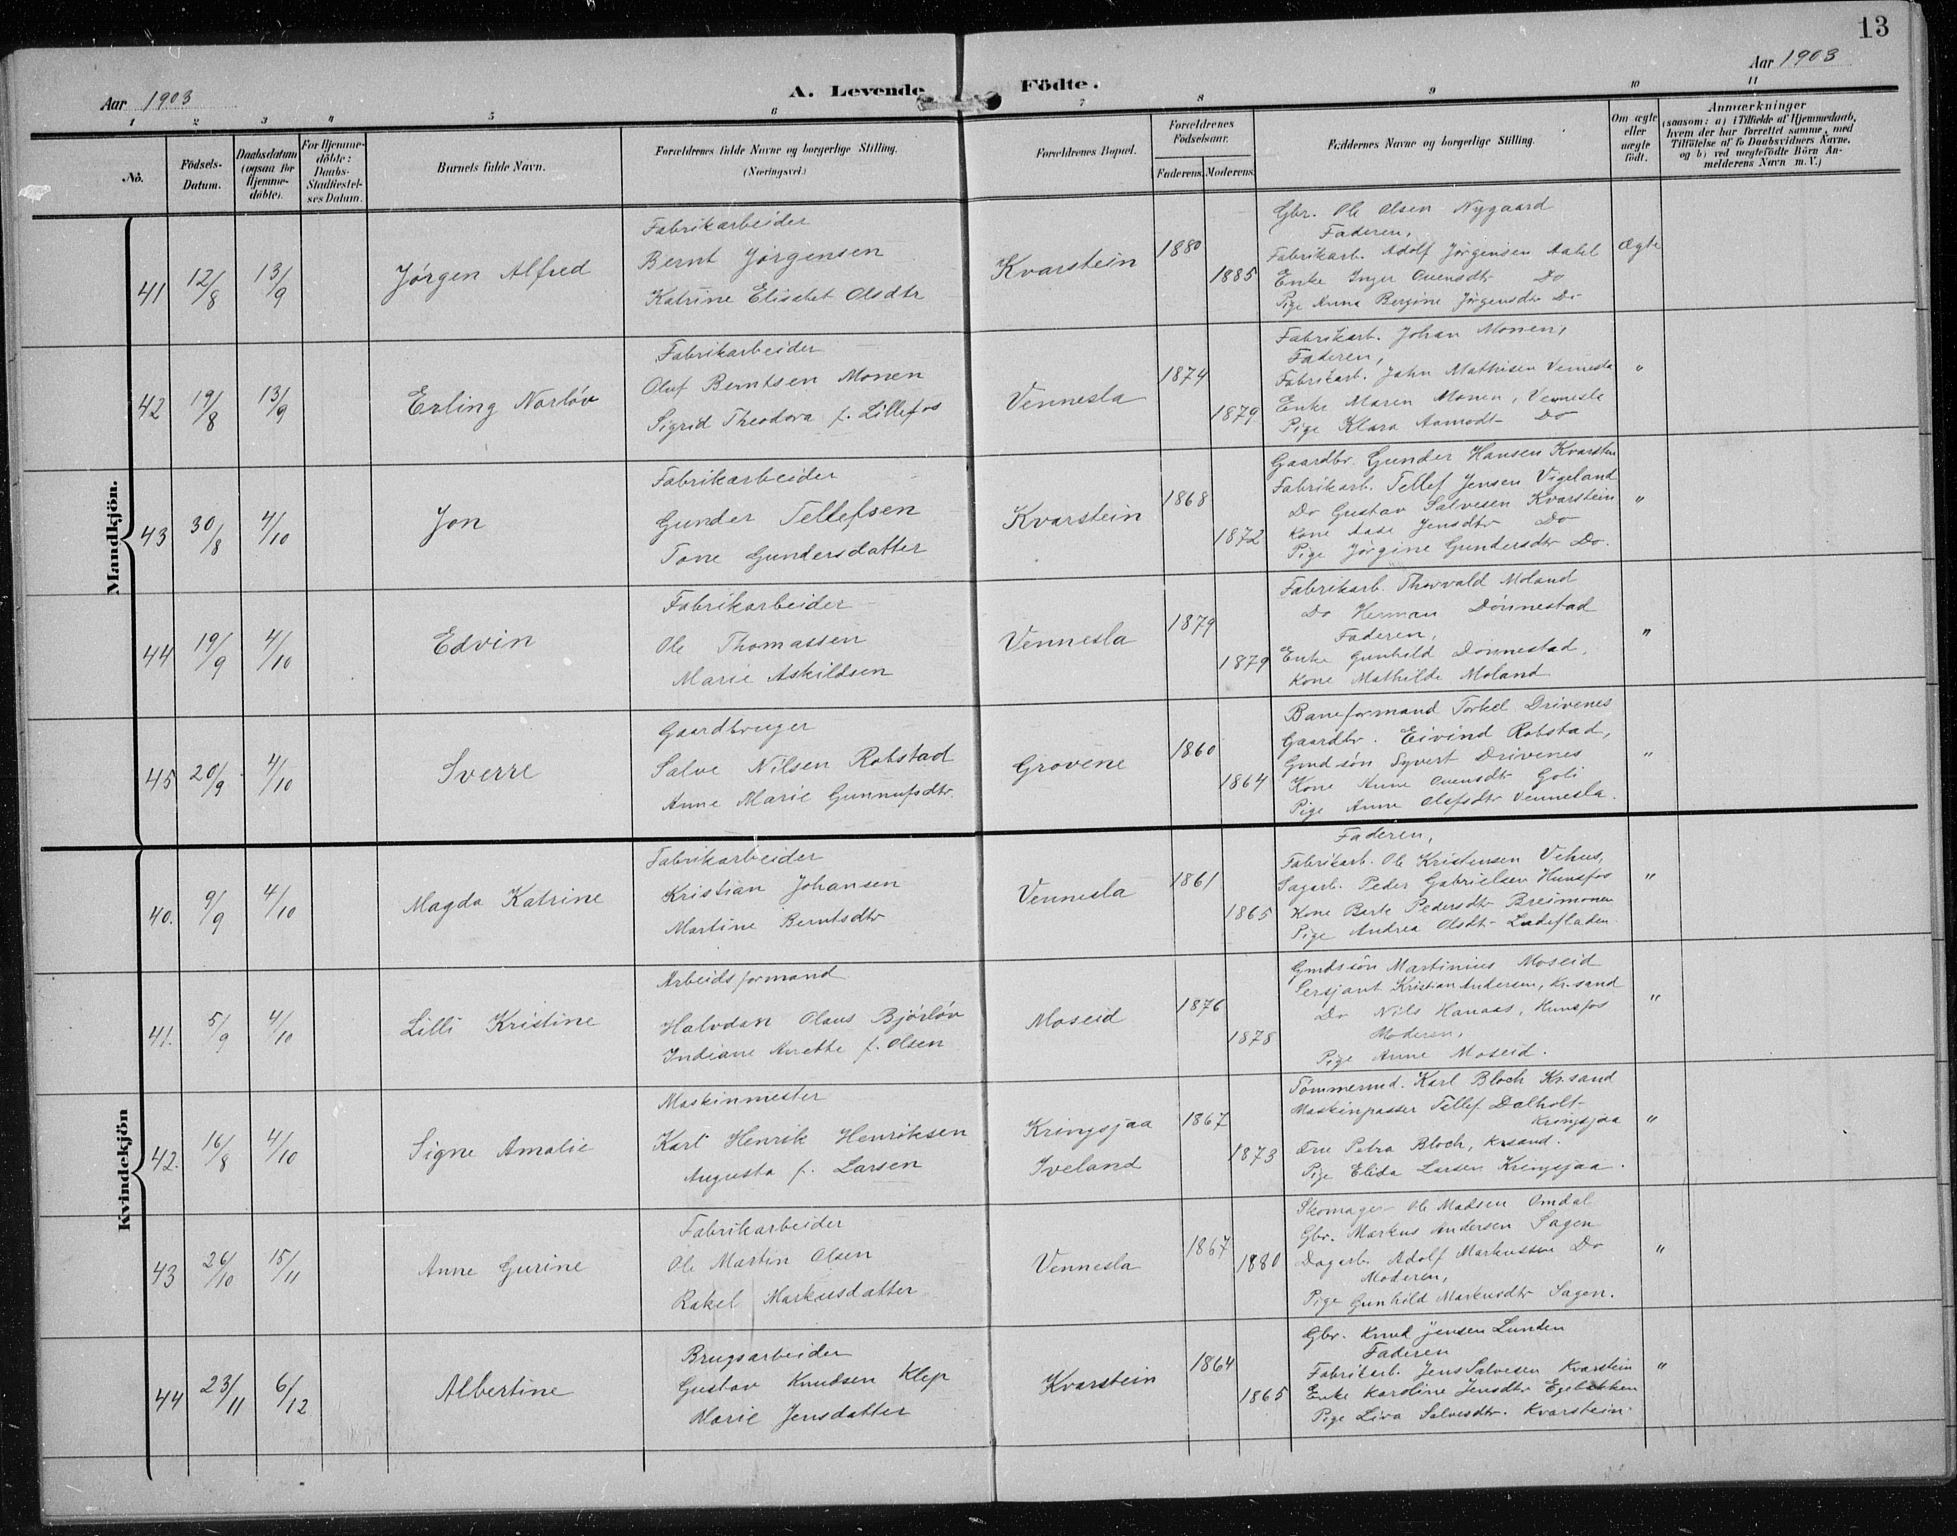 13
Aar 1903
A. Levende Födte.
Aar 1903
1 2 3 4 5 6 7 8 9 10 11
No.
Födsels-Datum.
Daabsdatum (ogsaa for Hjemme-döbte).
For Hjemme-döbte: Daabs-Stadfæstel-ses Datum.
Barnets fulde Navn.
Forældrenes fulde Navne og borgerlige Stilling.
(Næringsvei.)
Forældrenes Bopæl.
Forældrenes Födselsaar.
Faderens. Moderens.
Faddernes Navne og borgerlige Stilling.
Om ægte eller uægte födt.
Anmærkninger
(saasom: a) i Tilfælde af Hjemmedaab,
hvem der har forrettet samme, med
Tilföielse af to Daabsvidners Navne,
og b) ved uægtefödte Börn An-
melderens Navn m. V.)
Mandkjön.
41 12/8 13/9 Jørgen Alfred
Fabrikarbeider
Bernt Jørgensen
Katrine Elisabet Olsdtr
Kvarstein 1880 1885
Gbr. Ole Olsen Nygaard
Faderen,
Fabrikarb. Adolf Jørgensen Aabel
Enke Inger Ovensdtr Do
Pige Anna Bergine Jørgensdtr Do
Ægte
42 19/8 13/9 Erling Norløv
Fabrikarbeider
Oluf Berntsen Monen
Sigrid Theodora f. Lillefos
Vennesla 1874 1879
Fabrikarb. Johan Monen,
Faderen,
Fabrikarb. John Mathisen Vennesla
Enke Maren Monen, Vennesla
Pige Klara Aamodt Do
"
43 30/8 4/10 Jon
Fabrikarbeider
Gunder Tellefsen
Tone Gundersdatter
Kvarstein 1868 1872
Gaardbr. Gunder Hansen Kvarstein
Fabrikarb. Tellef Jensen Vigeland
Do Gustav Salvesen Kvarstein
Kone Aase Jensdtr Do
Pige Jørgine Gundersdtr Do.
"
44 19/9 4/10 Edvin
Fabrikarbeider
Ole Thomassen
Marie Askildsen
Vennesla 1879 1879
Fabrikarb. Thorvald Moland
Do Herman Dønnestad
Faderen,
Enke Gunhild Dønnestad,
Kone Mathilde Moland
"
45 20/9 4/10 Sverre
Gaardbruger
Salve Nilsen Robstad
Anne Marie Gunnufsdtr.
Grovene 1860 1864
Baneformand Torkel Drivenes
Gaardbr. Eivind Robstad,
Gmdsøn Syvert Drivenes
Kone Anne Ovensdtr Goli
Pige Anne Olsfsdtr Vennesla.
"
Kvindekjön
40. 9/9 4/10 Magda Katrine
Fabrikarbeider
Kristian Johansen
Martine Berntsdtr
Vennesla 1861 1865
Faderen,
Fabrikarb. Ole Kristensen Vehus,
Sagarb. Peder Gabrielsen Hunsfos
Kone Berte Pedersdtr Breimonen
Pige Andrea Olsdt- Ladefladen
"
41. 5/9 4/10 Lilli Kristine
Arbeidsformand
Halvdan Olaus Bjørløv
Indiane Anette f. Olsen
Moseid 1876 1878
Gmdssøn Martinius Moseid
Sersjant Kristian Andersen, Kr.sand
Do Nils Hanaas, Hunsfos
Moderen,
Pige Anne Moseid.
"
42. 16/8 4/10 Signe Amalie
Maskinmester
Karl Henrik Henriksen
Augusta f. Larsen
Kringsjaa
Iveland
1867 1873
Tømmermd. Karl Bloch Kr.sand
Maskinpasser Tellef Dalholt-
Kringsjaa
Frue Petra Bloch, Kr.sand.
Pige Elida Larsen Kringsjaa.
"
43 26/10 15/11 Anne Gurine
Fabrikarbeider
Ole Martin Olsen
Rakel Markusdatter
Vennesla 1867 1880
Skomager Ole Madsen Omdal
Gbr. Markus Andersen Sagen
Dagarb. Adolf Markussen Do
Moderen,
Pige Gunhild Markusdtr Sagen.
"
44 23/11 6/12 Albertine
Brugsarbeider
Gustav Knudsen Klep
Marie Jensdatter
Kvarstein 1864 1865
Gbr. Knud Jensen Lunden
Faderen
Fabrikarb. Jens Salvesen Kvarstein
Enke Karoline Jensdtr Egebakken
Pige Liva Salvesdtr. Kvarstein.
"